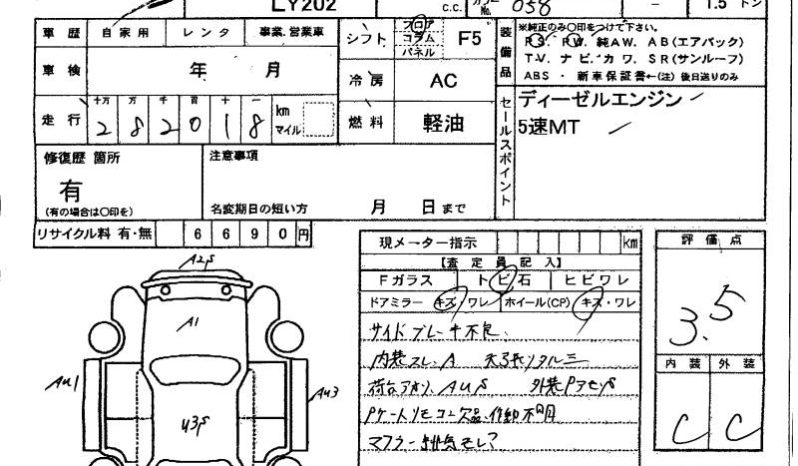 LY202
C.C.
No.
058
1.5 トン
車歴 自家用 レンタ 事業.営業車
シフト フロア コラム パネル F5
装備品
※純正のみ〇印をつけて下さい。
PS. PW. 純AW. AB(エアバック)
TV. ナビ. カワ. SR(サンルーフ)
ABS ・ 新車保証書←(注) 後日送りのみ
車検 年 月
冷房 AC
走行 十万 万 千 百 十 一
2 8 2 0 1 8 km マイル
燃料 軽油
セールスポイント
ディーゼルエンジン
5速MT
修復歴 箇所
有
(有の場合は〇印を)
注意事項
名変期日の短い方 月 日まで
リサイクル料 有・無 6 6 9 0 円
現メーター指示 km
【査定員記入】
Fガラス トビ石 ヒビワレ
ドアミラー キズ/ワレ ホイール(CP) キズ・ワレ
サイドブレーキ不良
内装スレ.A
マフラー排気モレ?
評価点
3.5
内装 外装
C C
A1